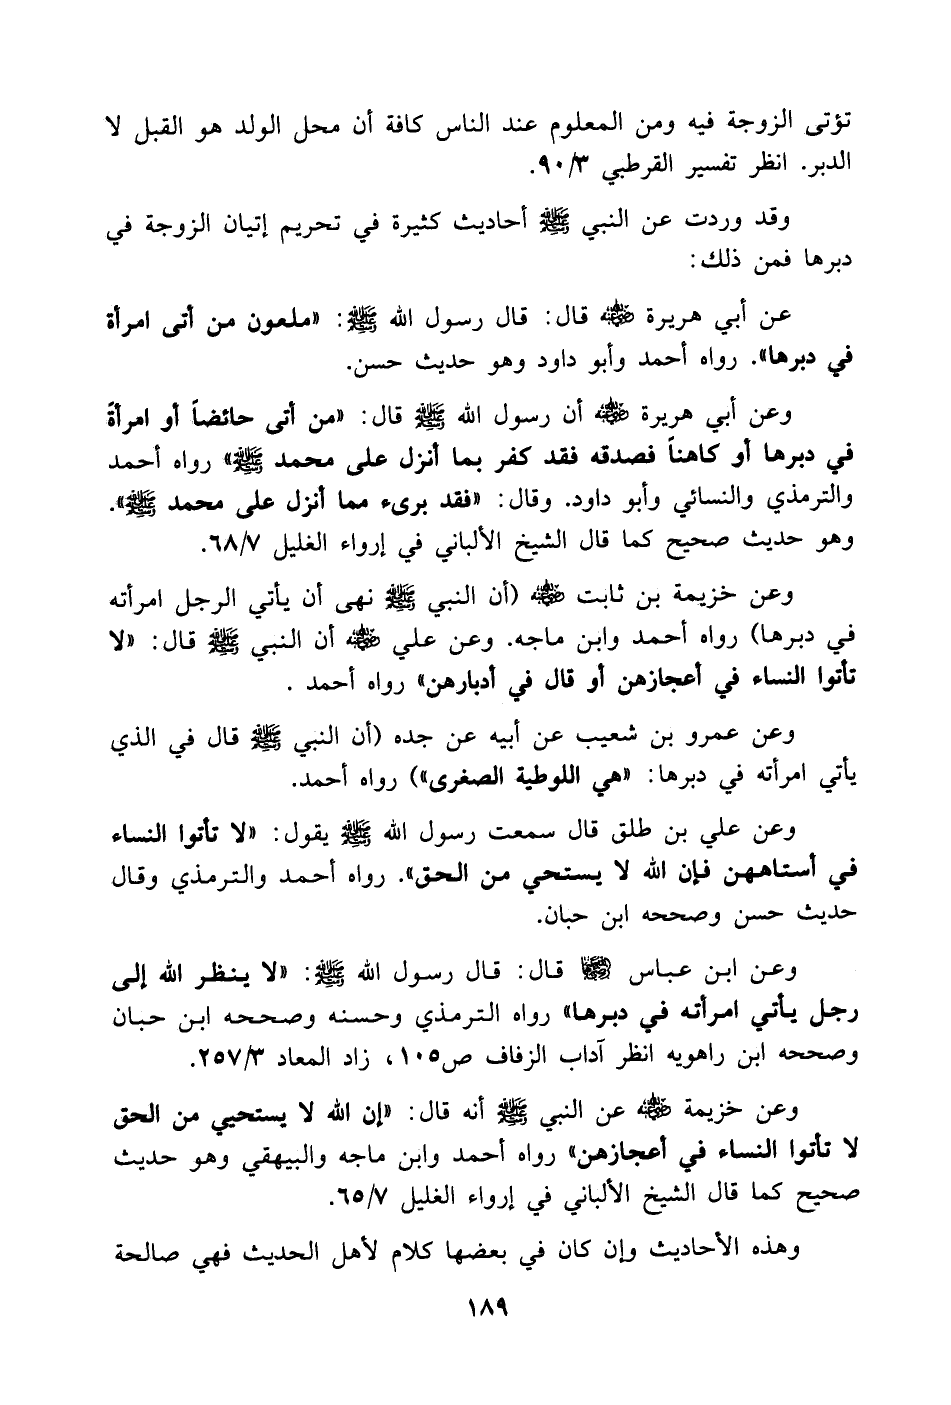 تؤتى الزوجة فيه ومن المعلوم عند الناس كافة أن محل الولد هو القبل لا
الدبر. انظر تفسير القرطبي ٩٠/٣.
وقد وردت عن النبي ﷺ أحاديث كثيرة في تحريم إتيان الزوجة في
دبرها فمن ذلك:
عن أبي هريرة رضي الله عنه قال: قال رسول الله ﷺ: «ملعون من أتى امرأة
في دبرها». رواه أحمد وأبو داود وهو حديث حسن.
وعن أبي هريرة رضي الله عنه أن رسول الله ﷺ قال: «من أتى حائضاً أو امرأةً
في دبرها أو كاهناً فصدقه فقد كفر بما أنزل على محمد ﷺ» رواه أحمد
والترمذي والنسائي وأبو داود. وقال: «فقد برىء مما أنزل على محمد ﷺ».
وهو حديث صحيح كما قال الشيخ الألباني في إرواء الغليل ٦٨/٧.
وعن خزيمة بن ثابت رضي الله عنه (أن النبي ﷺ نهى أن يأتي الرجل امرأته
في دبرها) رواه أحمد وابن ماجه. وعن علي رضي الله عنه أن النبي ﷺ قال: «لا
تأتوا النساء في أعجازهن أو قال في أدبارهن» رواه أحمد .
وعن عمرو بن شعيب عن أبيه عن جده (أن النبي ﷺ قال في الذي
يأتي امرأته في دبرها: «هي اللوطية الصغرى») رواه أحمد.
وعن علي بن طلق قال سمعت رسول الله ﷺ يقول: «لا تأتوا النساء
في أستاههن فإن الله لا يستحي من الحق». رواه أحمد والترمذي وقال
حديث حسن وصححه ابن حبان.
وعن ابن عباس رضي الله عنهما قال: قال رسول الله ﷺ: «لا ينظر الله إلى
رجل يأتي امرأته في دبرها» رواه الترمذي وحسنه وصححه ابن حبان
وصححه ابن راهويه انظر آداب الزفاف ص١٠٥، زاد المعاد ٢٥٧/٣.
وعن خزيمة رضي الله عنه عن النبي ﷺ أنه قال: «إن الله لا يستحيي من الحق
لا تأتوا النساء في أعجازهن» رواه أحمد وابن ماجه والبيهقي وهو حديث
صحيح كما قال الشيخ الألباني في إرواء الغليل ٦٥/٧.
وهذه الأحاديث وإن كان في بعضها كلام لأهل الحديث فهي صالحة
١٨٩